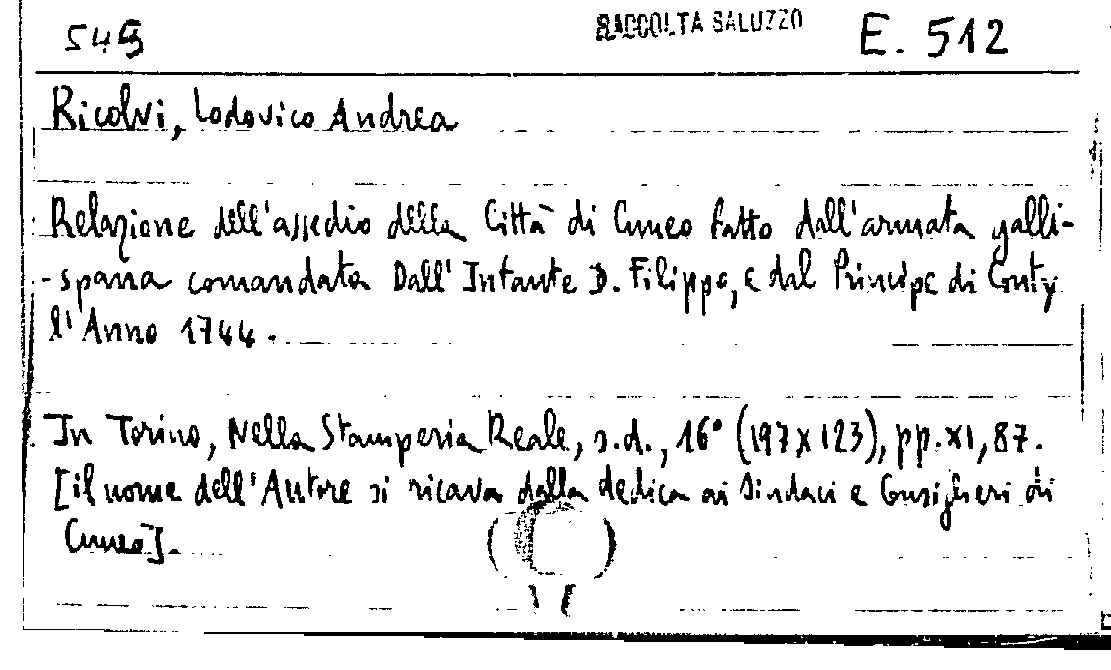 549 RACCOLTA SALUZZO E. 512
Ricolvi, Lodovico Andrea
Relazione dell'assedio della Città di Cuneo fatto dall'armata galli-
-spana comandata Dall'Infante D. Filippo, e dal Principe di Conty
l'Anno 1744.
In Torino, Nella Stamperia Reale, s.d., 16° (197x123), pp. XI, 87.
[il nome dell'Autore si ricava dalla dedica ai Sindaci e Consiglieri di
Cuneo].